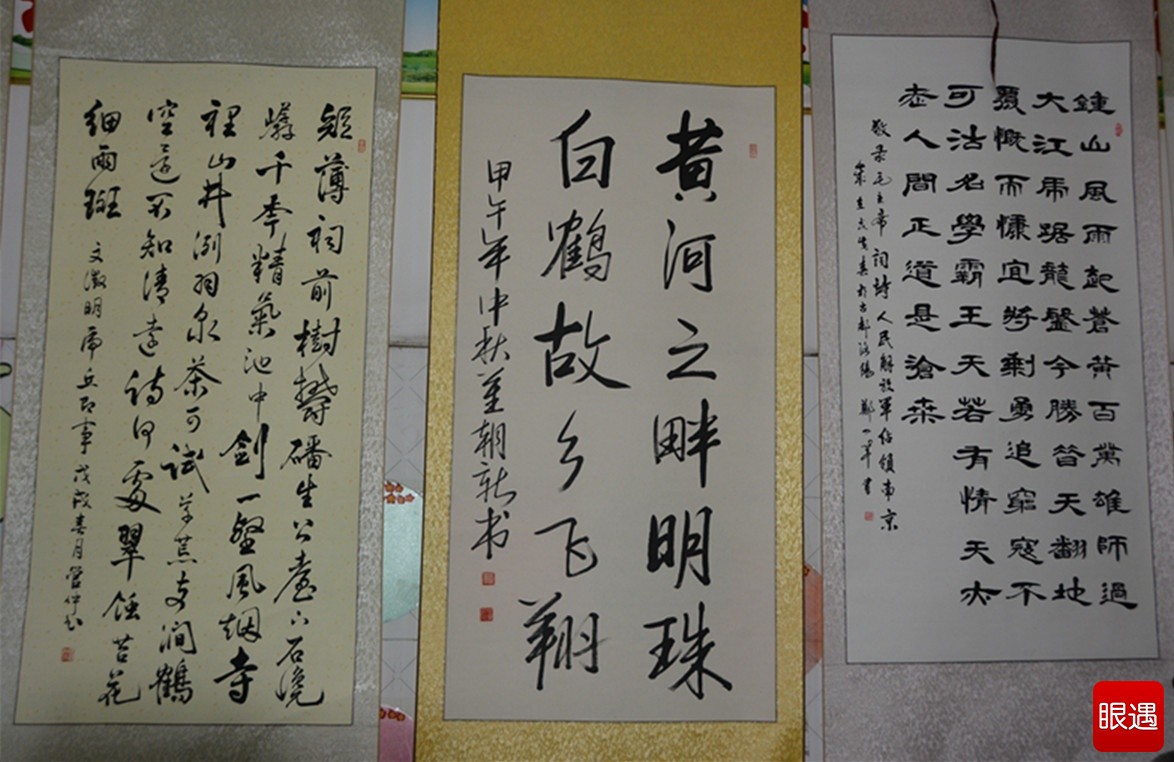 鍾山風雨起蒼黄百萬雄師過
大江虎踞龍盤今勝昔天翻地
覆慨而慷宜將剩勇追窮寇不
可沽名學霸王天若有情天亦
老人間正道是滄桑
敬录毛主席词詩人民解放軍佔領南京
古都洛陽鄭一军書
黄河之畔明珠
白鶴故乡飞翔
甲午年中秋董朝新书
短薄祠前樹鬱磻生公臺下石巉
巖千年精氣池中劍一壑風烟寺
裡山井洌羽泉茶可試草荒支澗鶴
空還不知清遠詩何處翠蝕苔花
細雨斑文徵明虎丘即事戊戌春月管仲书
眼遇